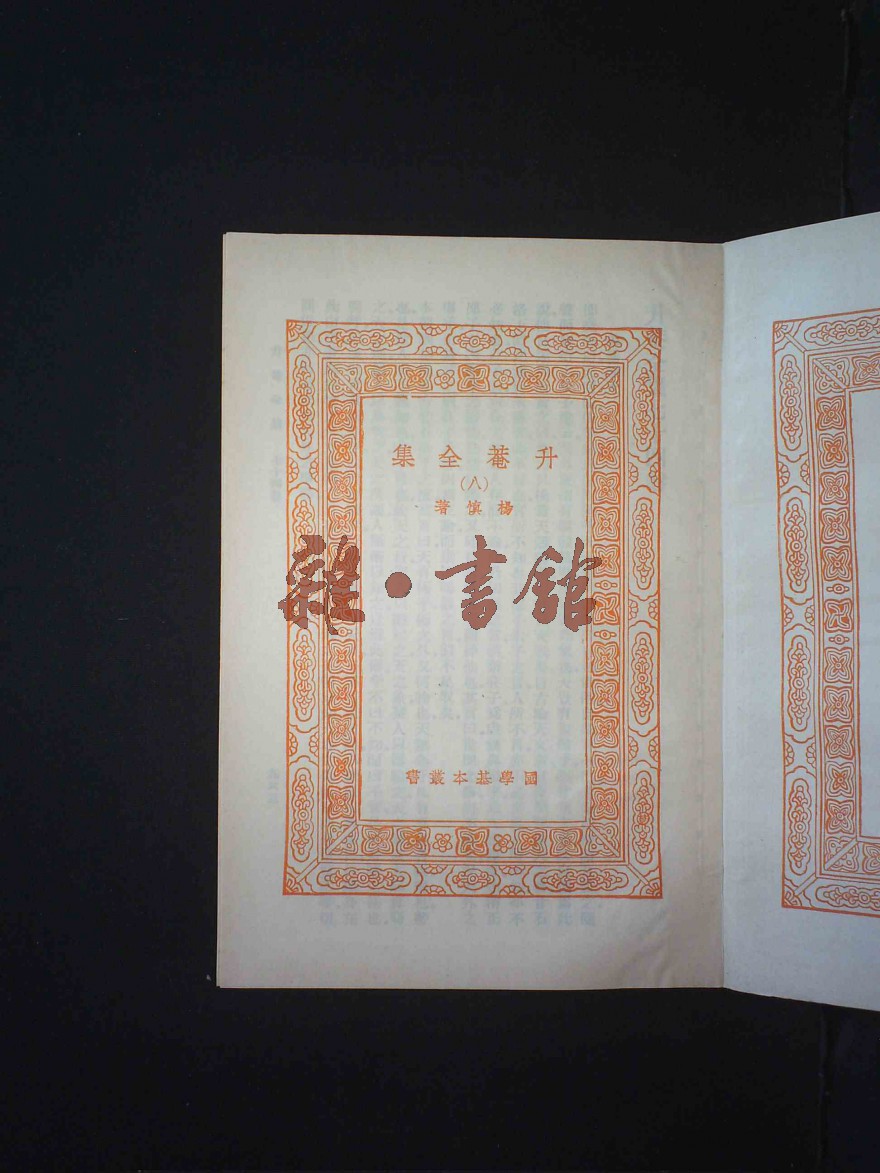 升菴全集
(八)
楊慎著
雜•書館
國學基本叢書